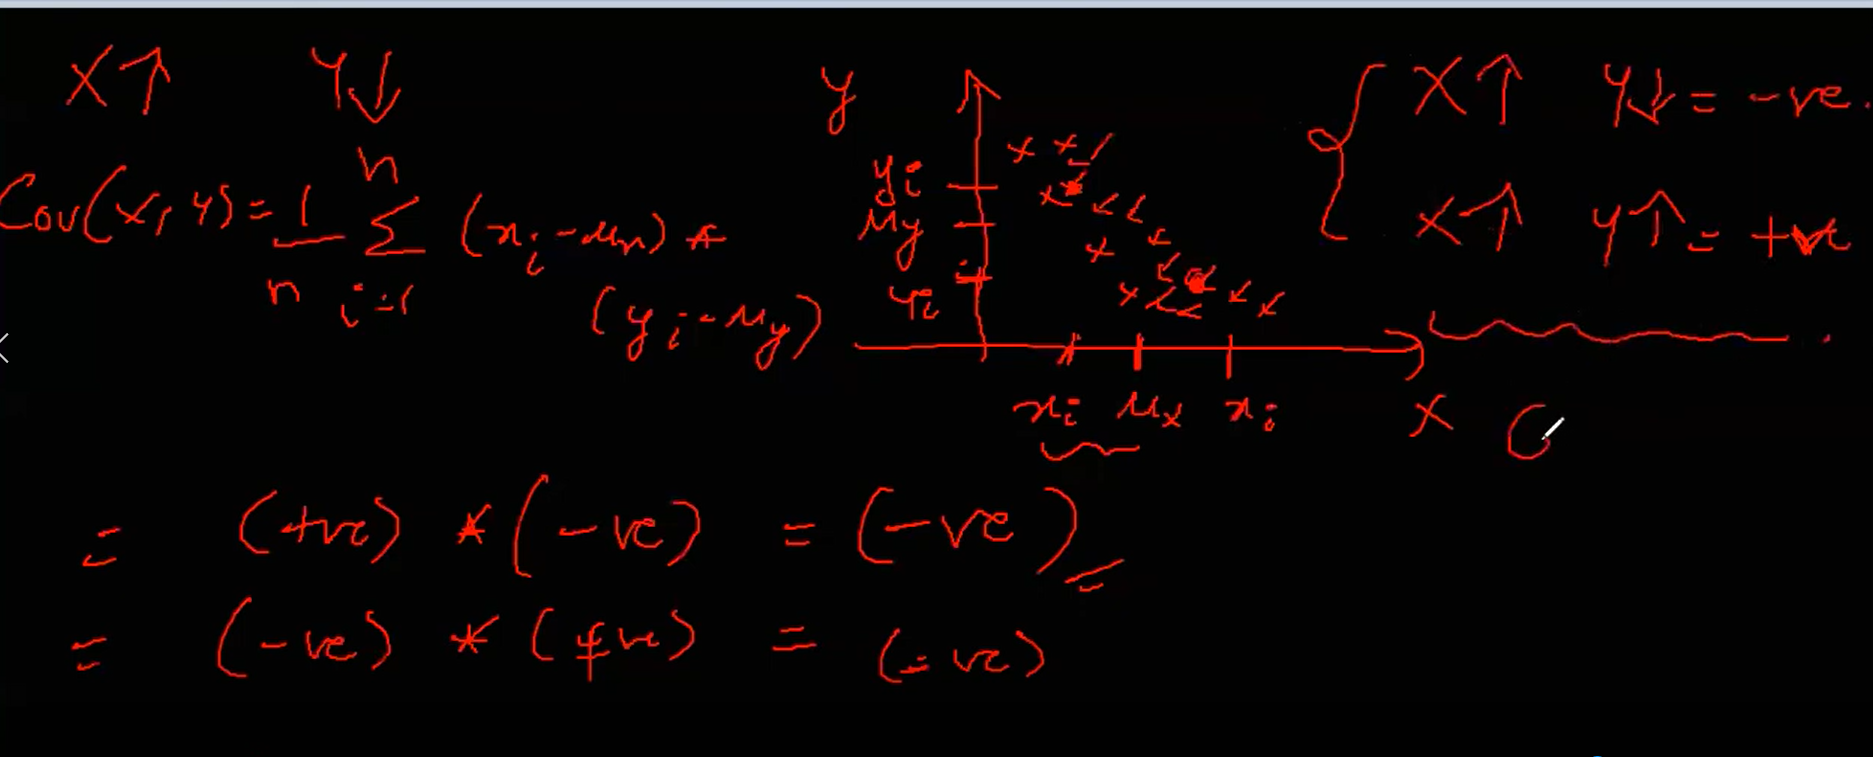 X↑ Y↓
Cov(x, y) = 1/n n Σ i=1 (xi - μx) *
(yi - μy)
y
yi
μy
yi
xi μx xi
X
X↑ Y↓ = -ve.
X↑ Y↑ = +ve
= (+ve) * (-ve) = (-ve)
= (-ve) * (+ve) = (-ve)